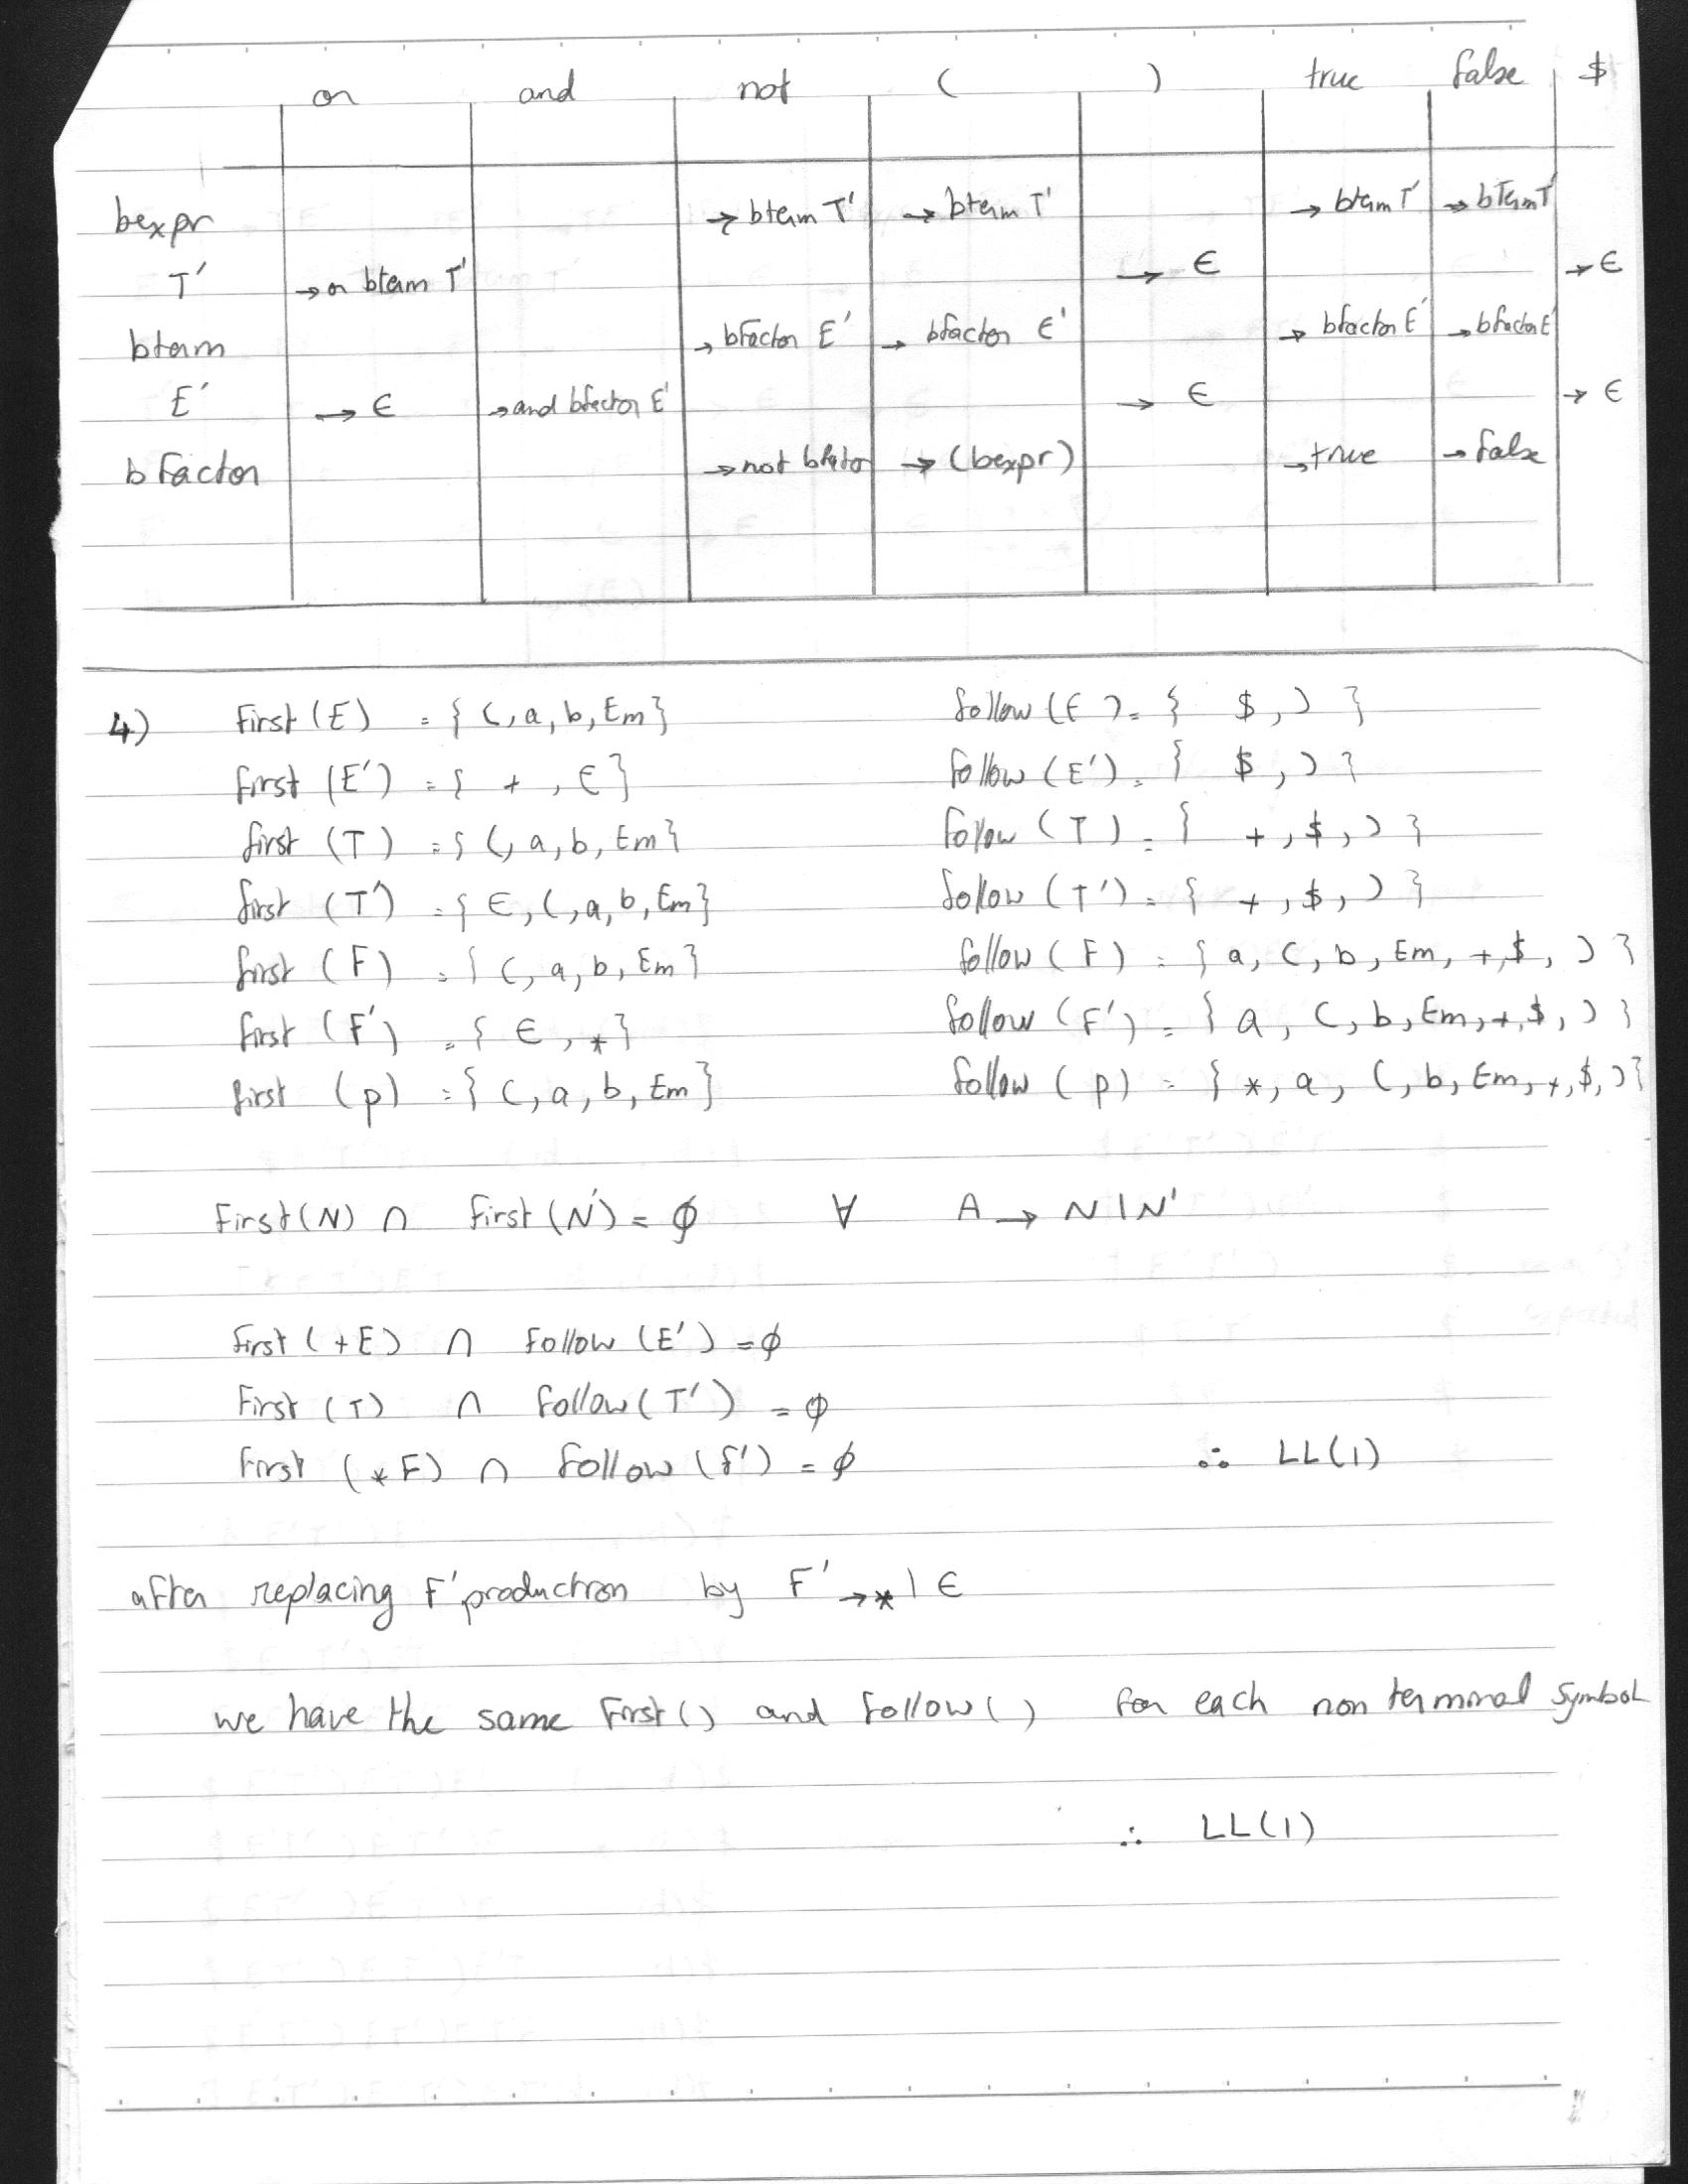 or and not ( ) true false $
bexpr → bterm T' → bterm T' → bterm T' → bterm T'
T' → or bterm T' → ϵ → ϵ
bterm → bfactor E' → bfactor E' → bfactor E' → bfactor E'
E' → ϵ → and bfactor E' → ϵ → ϵ
bfactor → not bfator → (bexpr) → true → false
4) First (E) = { (, a, b, Em} follow (E) = { $, ) }
first (E') = { +, ϵ } follow (E') = { $, ) }
first (T) = { (, a, b, Em} follow (T) = { +, $, ) }
first (T') = { ϵ, (, a, b, Em} follow (T') = { +, $, ) }
first (F) = { (, a, b, Em} follow (F) = { a, (, b, Em, +, $, ) }
first (F') = { ϵ, * } follow (F') = { a, (, b, Em, +, $, ) }
first (p) = { (, a, b, Em } follow (p) = { *, a, (, b, Em, +, $, ) }
First(N) ∩ first(N') = ϕ ∀ A → N | N'
first (+E) ∩ Follow (E') = ϕ
First (T) ∩ follow (T') = ϕ
First (*F) ∩ follow (f') = ϕ ∴ LL(1)
after replacing F' production by F' → * | ϵ
we have the same First() and follow() for each non terminal symbol
∴ LL(1)